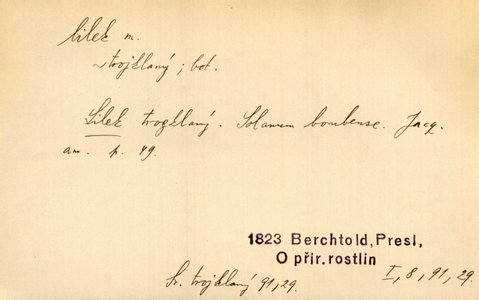 lilek m.
~trojklaný; bot.
Lilek trogklaný. Solanum bombense. Jacq.
am. p. 49.
1823 Berchtold, Presl,
O přir. rostlin
Sr. trojklaný 91, 29. I, 8, 91, 29.